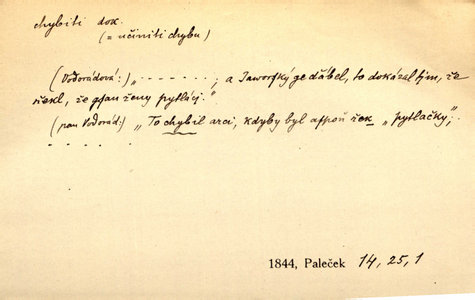 chybiti dok.
(= učiniti chybu)
(Vodorádová:) „- - - - - - ; a Jaworský ge ďábel, to dokázal tjm, že
řekl, že gsau ženy pytláci."
(pan Vodorád:) „To chybil arci, kdyby byl aspoň řek „pytlačky",.
- - - - -
1844, Paleček 14, 25, 1